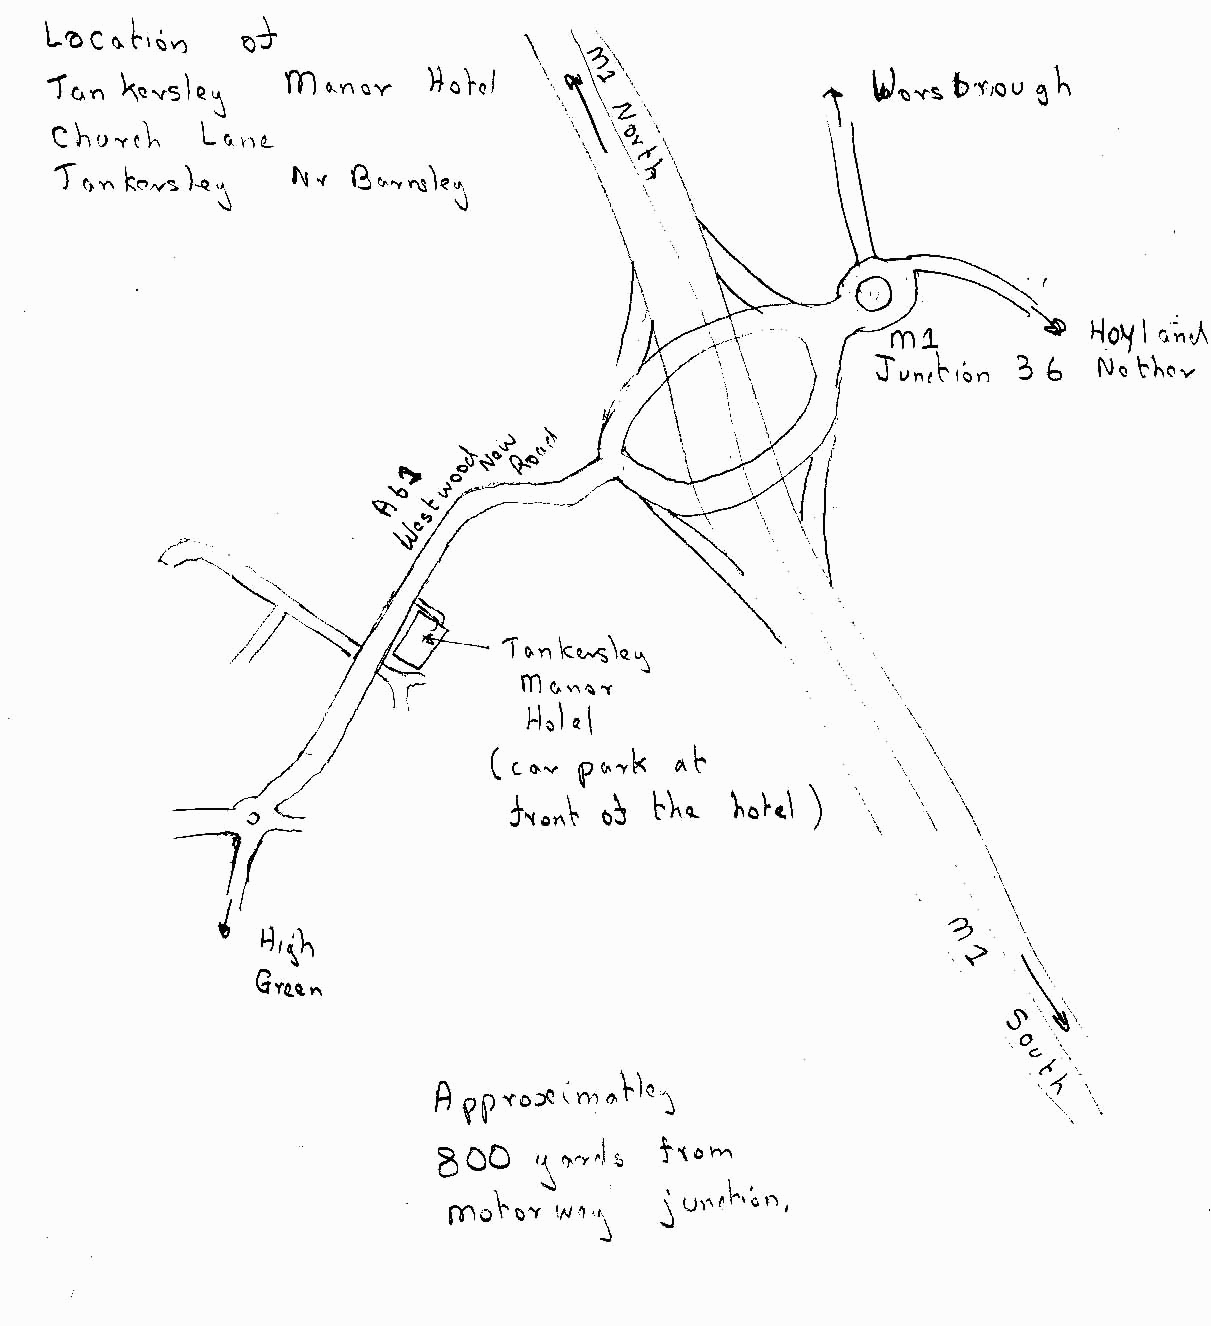 Location of
Tankersley Manor Hotel
Church Lane
Tankersley Nr Barnsley
M1 North
Worsbrough
Hoyland
Nether
M1
Junction 36
A61
Westwood New
Road
Tankersley
Manor
Hotel
(car park at
front of the hotel)
High
Green
M1
South
Approximatley
800 yards from
motorway junction.